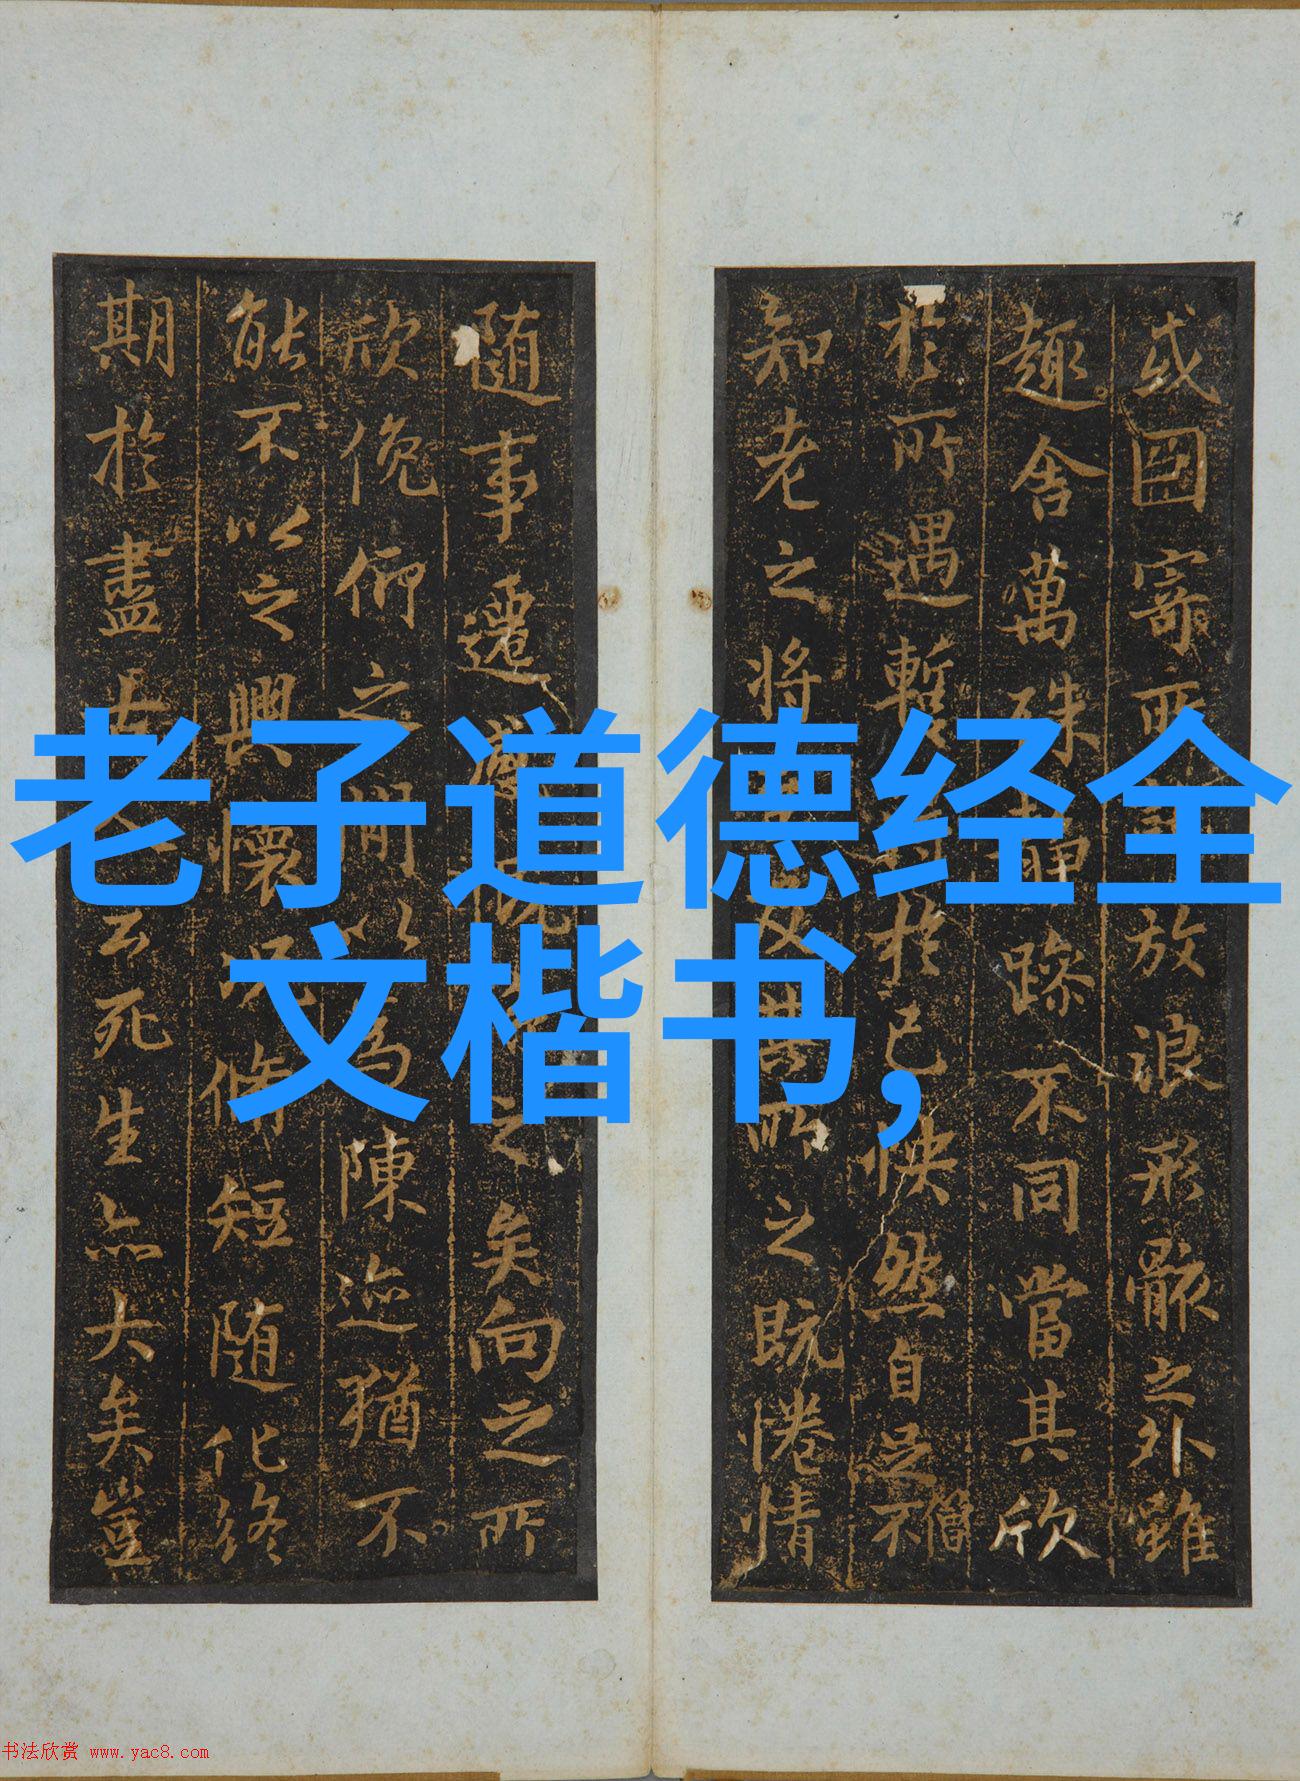 老子道德经全
文楷书,
或因寄所放浪形骸之外雖
趣舍萬殊靜躁不同當其欣
於所遇暫於己怏然自足不
僧
知老之將及其所之既惓情
随事遷感之矣向之所
欣俛仰之間以為陳迹猶不
能不以之興懷況脩短随化終
期於盡古云死生亦大矣豈
书法欣赏 www.yac8.com